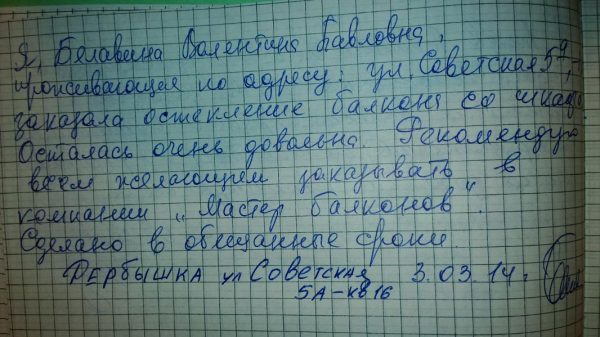 Я, Белавина Валентина Павловна,
проживающая по адресу: ул. Советская 5а,
заказала остекление балкона со шкафо
Осталась очень довольна. Рекомендую
всем желающим заказывать в
компании „Мастер балконов".
Сделано в обещанные сроки.
ДЕРБЫШКА ул СОВЕТСКАЯ 3.03.14г
5А-кв 16